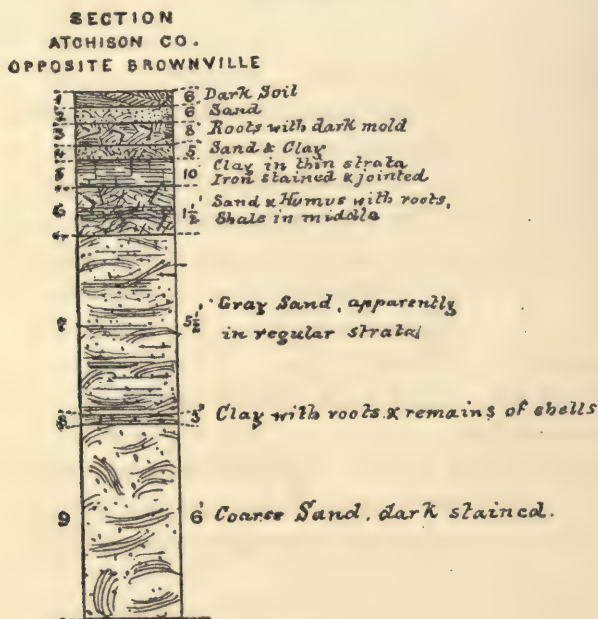 SECTION
ATCHISON CO.
OPPOSITE BROWNVILLE
1 6" Dark Soil
2 6" Sand
3 8" Roots with dark mold
4 5" Sand & Clay
5 10 Clay in thin strata
Iron stained & jointed
6 1½' Sand & Humus with roots,
Shale in middle
7 5½' Gray Sand, apparently
in regular strata
8 3" Clay with roots & remains of shells
9 6' Coarse Sand, dark stained.